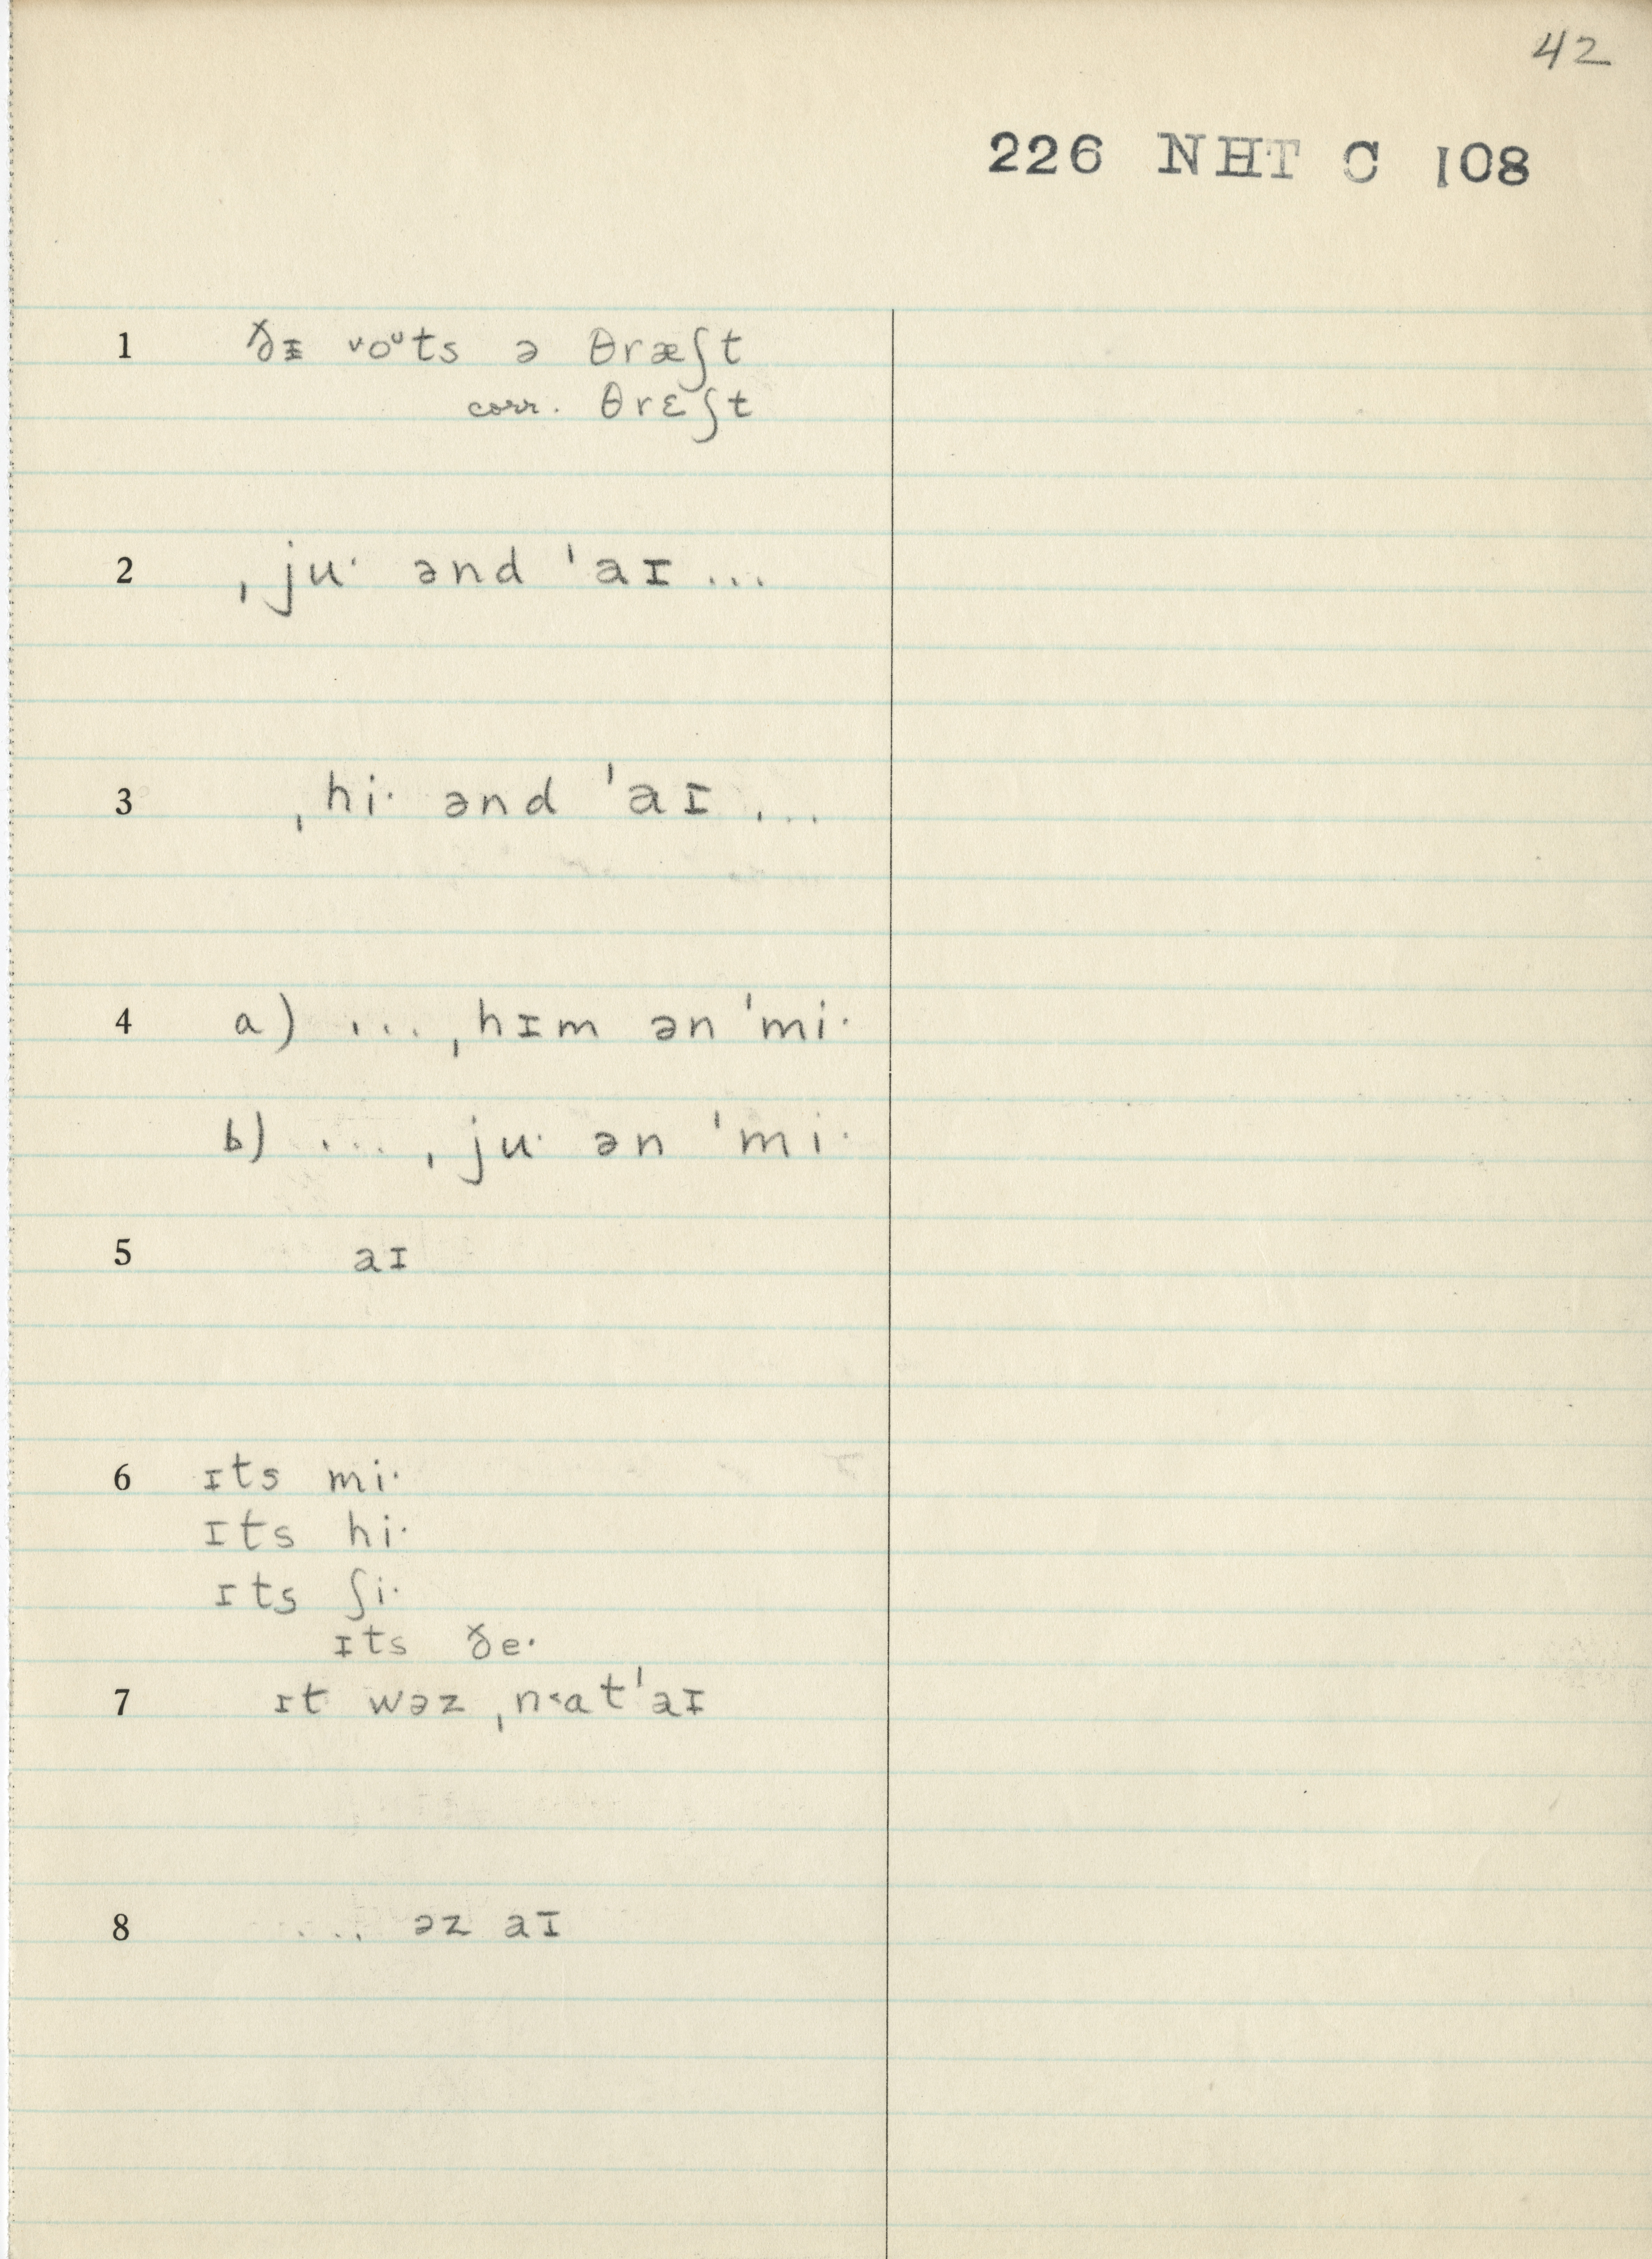 42
226 NHT C 108
1 ðᵻ ᵛoᶷts ə θræʃt
corr. θrɛʃt
2 ˌjuˑ ənd ˈaɪ ...
3 ˌhiˑ ənd ˈaɪ ...
4 a) ... ˌhɪm ən ˈmiˑ
b) ... ˌjuˑ ən ˈmiˑ
5 aɪ
6 ɪts miˑ
ɪts hiˑ
ɪts ʃiˑ
ɪts ðeˑ
7 ɪt wəz ˌn˂at ˈaɪ
8 ... əz aɪ